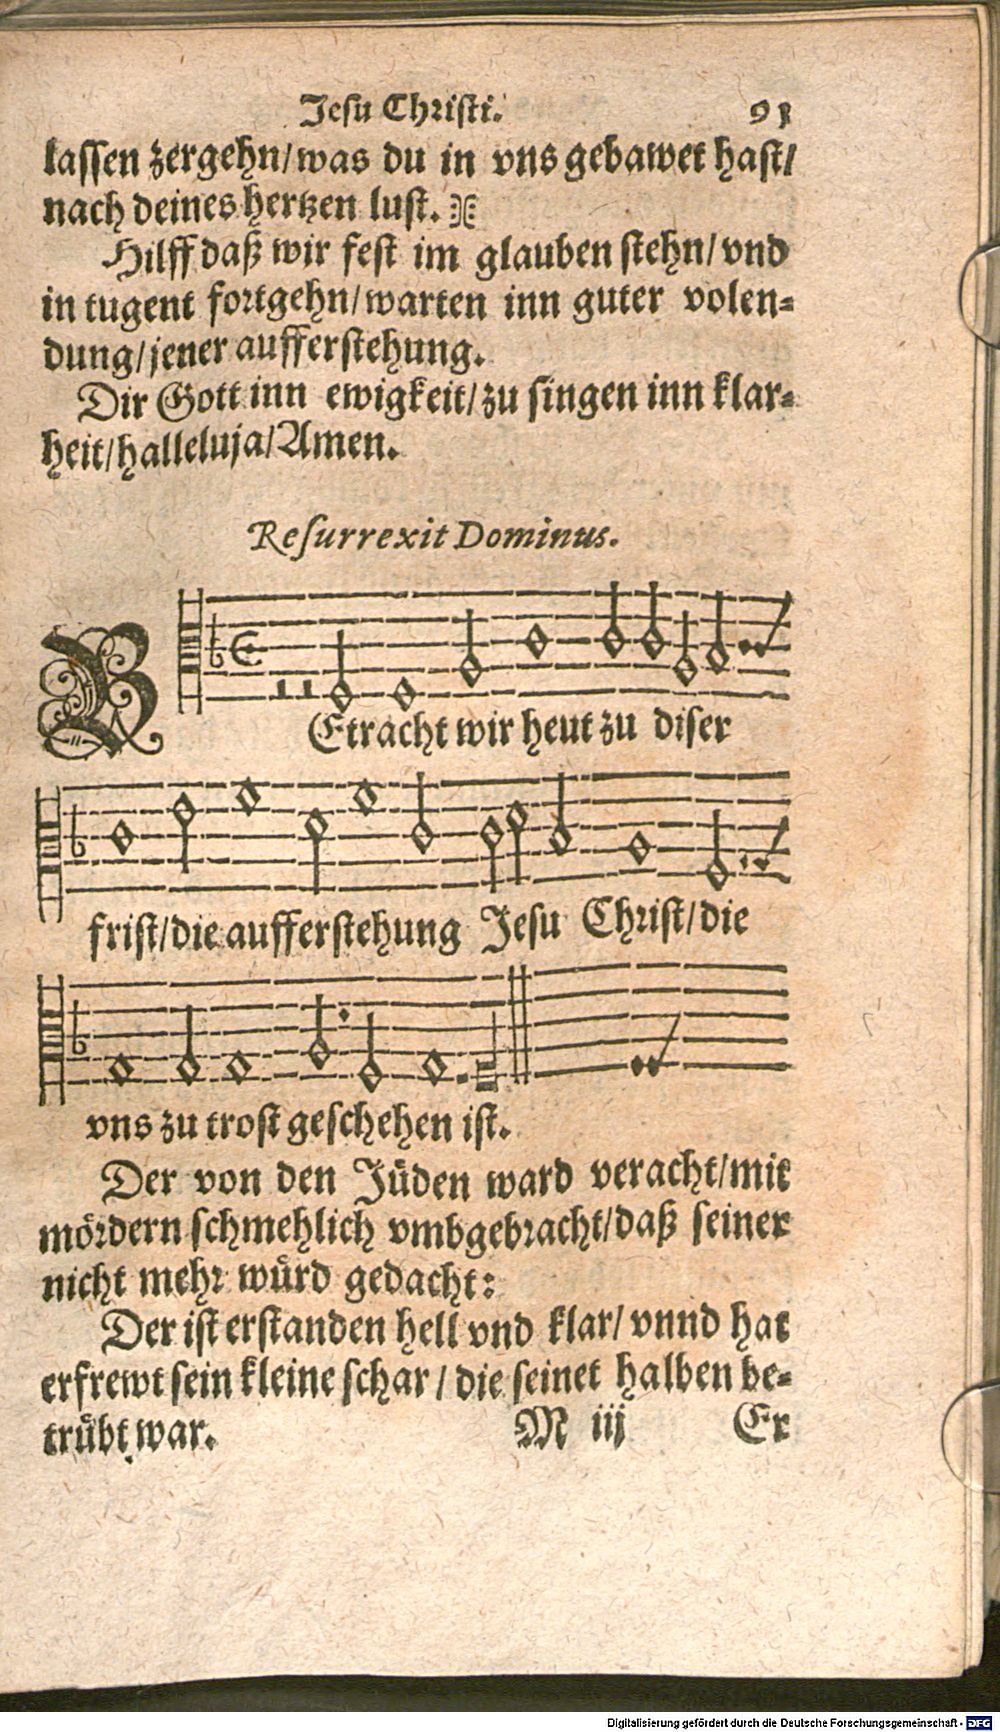 Jesu Christi. 91
lassen zergehn/was du in vns gebawet hast/
nach deines hertzen lust.
Hilff daß wir fest im glauben stehn/vnd
in tugent fortgehn/warten inn guter volen-
dung/jener aufferstehung.
Dir Gott inn ewigkeit/zu singen inn klar-
heit/halleluja/Amen.
Resurrexit Dominus.
BEtracht wir heut zu diser
frist/die aufferstehung Jesu Christ/die
vns zu trost geschehen ist.
Der von den Jüden ward veracht/mit
mördern schmehlich vmbgebracht/daß seiner
nicht mehr würd gedacht:
Der ist erstanden hell vnd klar/vnnd hat
erfrewt sein kleine schar/die seinet halben be-
trübt war. M iij Er
Digitalisierung gefördert durch die Deutsche Forschungsgemeinschaft - DFG